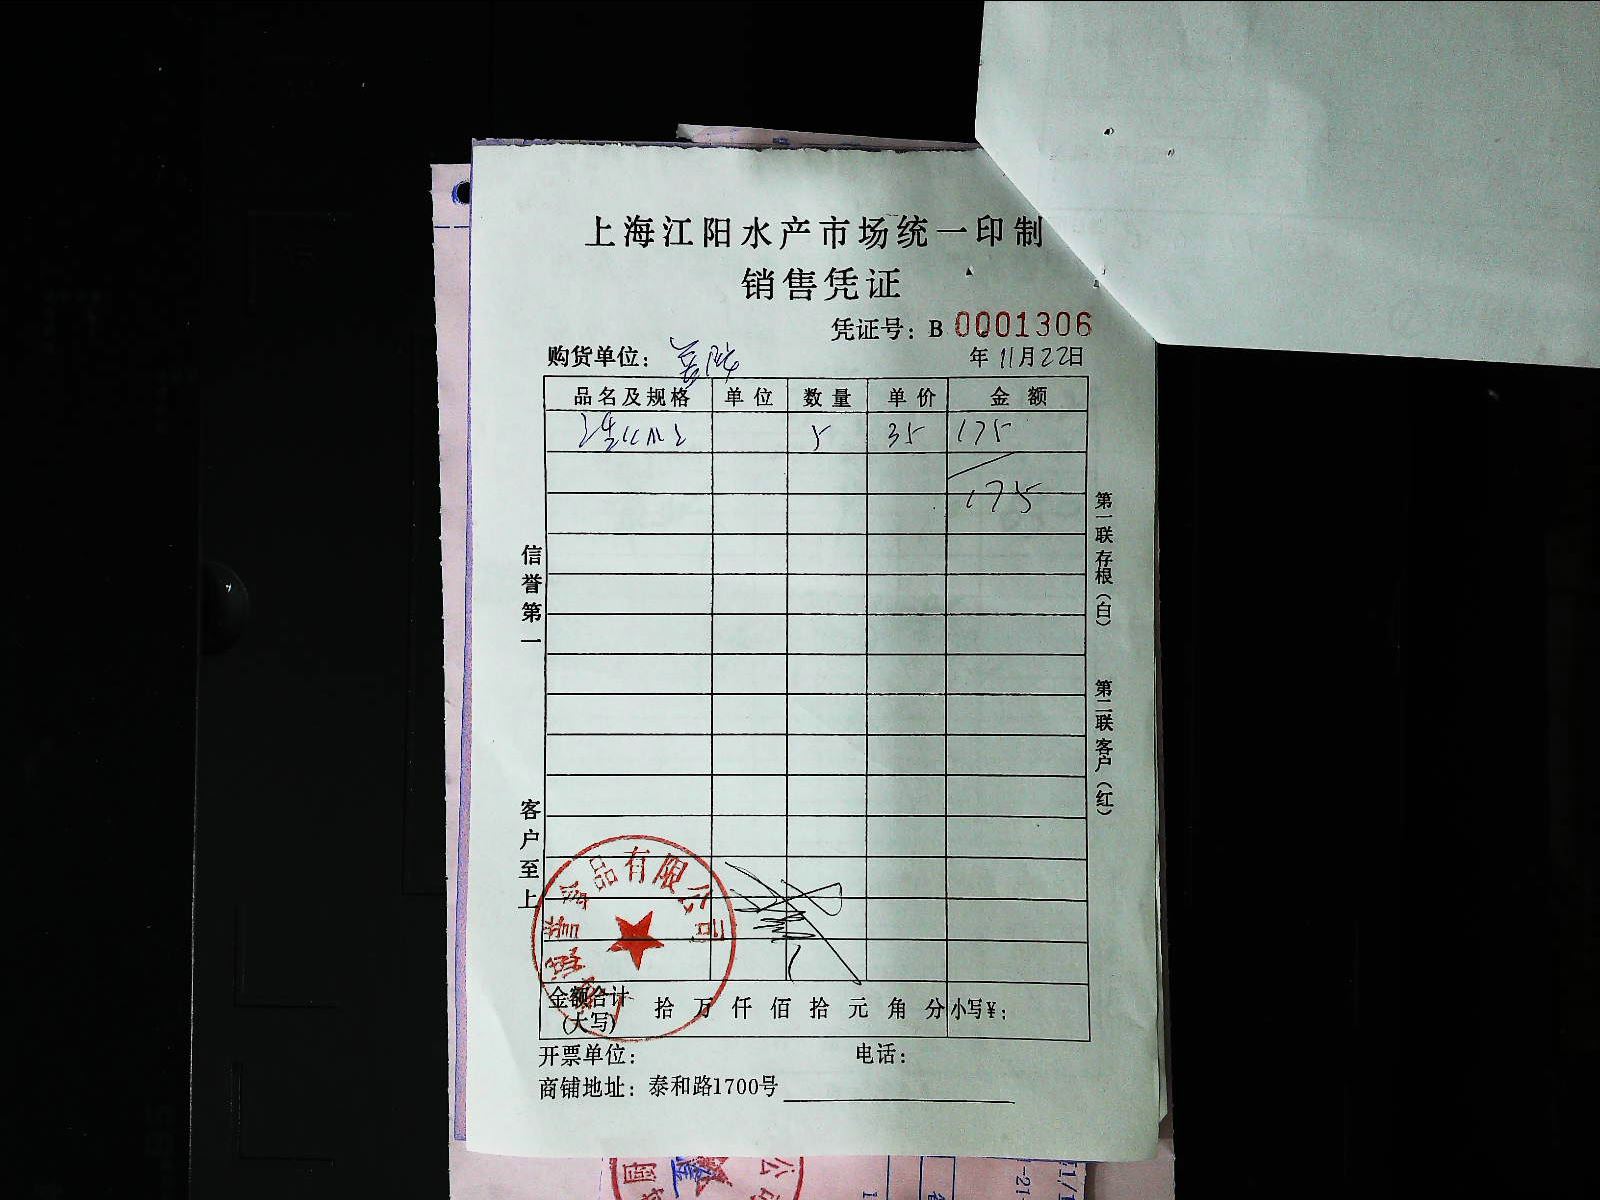 上海江阳水产市场统一印制
销售凭证
凭证号：B 0001306
购货单位：
年11月22日
品名及规格 单位 数量 单价 金额
5 35 175
175
信誉第一
客户至上
第一联存根（白）
第二联客户（红）
食品有限公司
金额合计（大写） 拾 万 仟 佰 拾 元 角 分 小写¥：
开票单位： 电话：
商铺地址：泰和路1700号